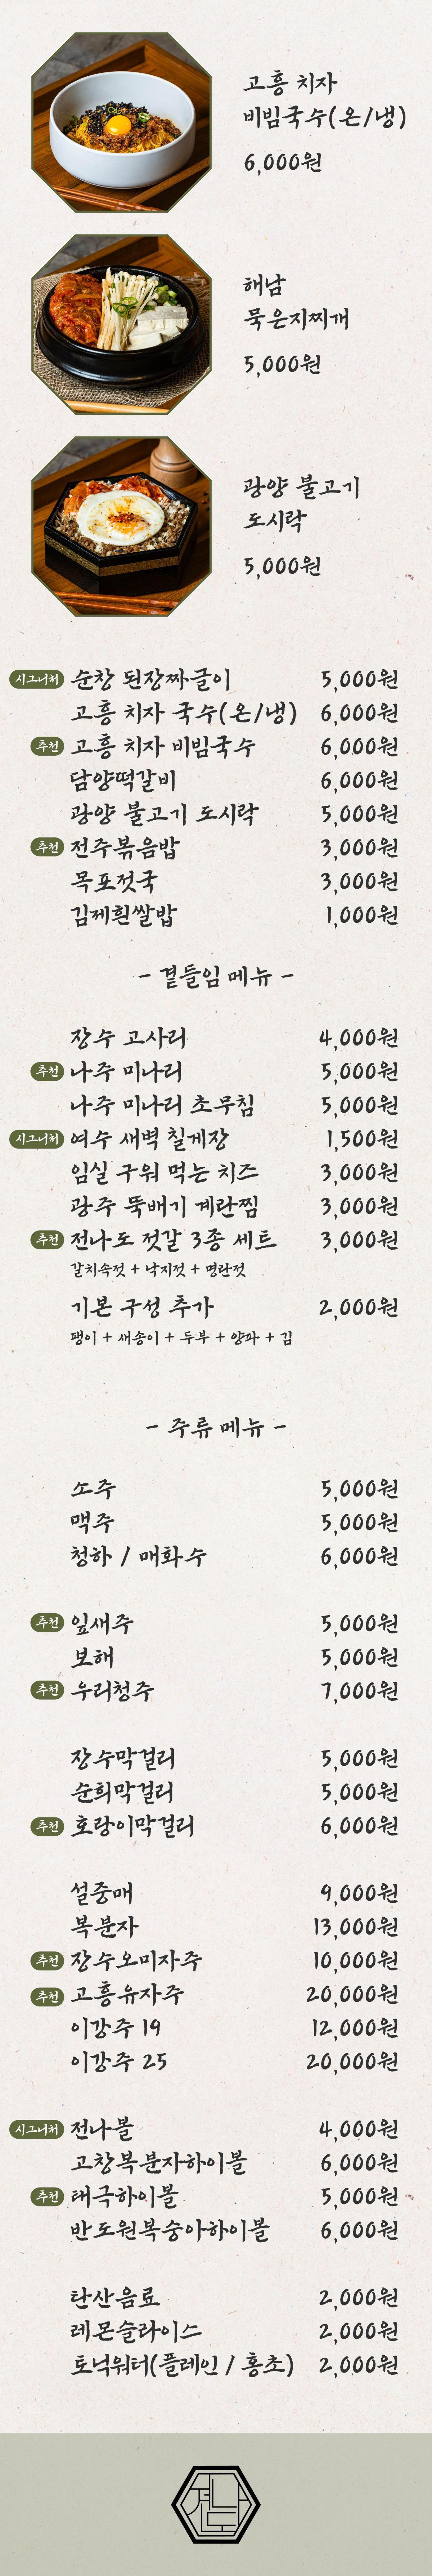 고흥 치자
비빔국수(온/냉)
6,000원
해남
묵은지찌개
5,000원
광양 불고기
도시락
5,000원
시그니처 순창 된장짜글이 5,000원
고흥 치자 국수(온/냉) 6,000원
추천 고흥 치자 비빔국수 6,000원
담양떡갈비 6,000원
광양 불고기 도시락 5,000원
추천 전주볶음밥 3,000원
목포젓국 3,000원
김제흰쌀밥 1,000원
- 곁들임 메뉴 -
장수 고사리 4,000원
추천 나주 미나리 5,000원
나주 미나리 초무침 5,000원
시그니처 여수 새벽 칠게장 1,500원
임실 구워 먹는 치즈 3,000원
광주 뚝배기 계란찜 3,000원
추천 전나도 젓갈 3종 세트 3,000원
갈치속젓 + 낙지젓 + 명란젓
기본 구성 추가 2,000원
팽이 + 새송이 + 두부 + 양파 + 김
- 주류 메뉴 -
소주 5,000원
맥주 5,000원
청하 / 매화수 6,000원
추천 잎새주 5,000원
보해 5,000원
추천 우리청주 7,000원
장수막걸리 5,000원
순희막걸리 5,000원
추천 호랑이막걸리 6,000원
설중매 9,000원
복분자 13,000원
추천 장수오미자주 10,000원
추천 고흥유자주 20,000원
이강주 19 12,000원
이강주 25 20,000원
시그니처 전나볼 4,000원
고창복분자하이볼 6,000원
추천 태극하이볼 5,000원
반도원복숭아하이볼 6,000원
탄산음료 2,000원
레몬슬라이스 2,000원
토닉워터(플레인 / 홍초) 2,000원
전나도